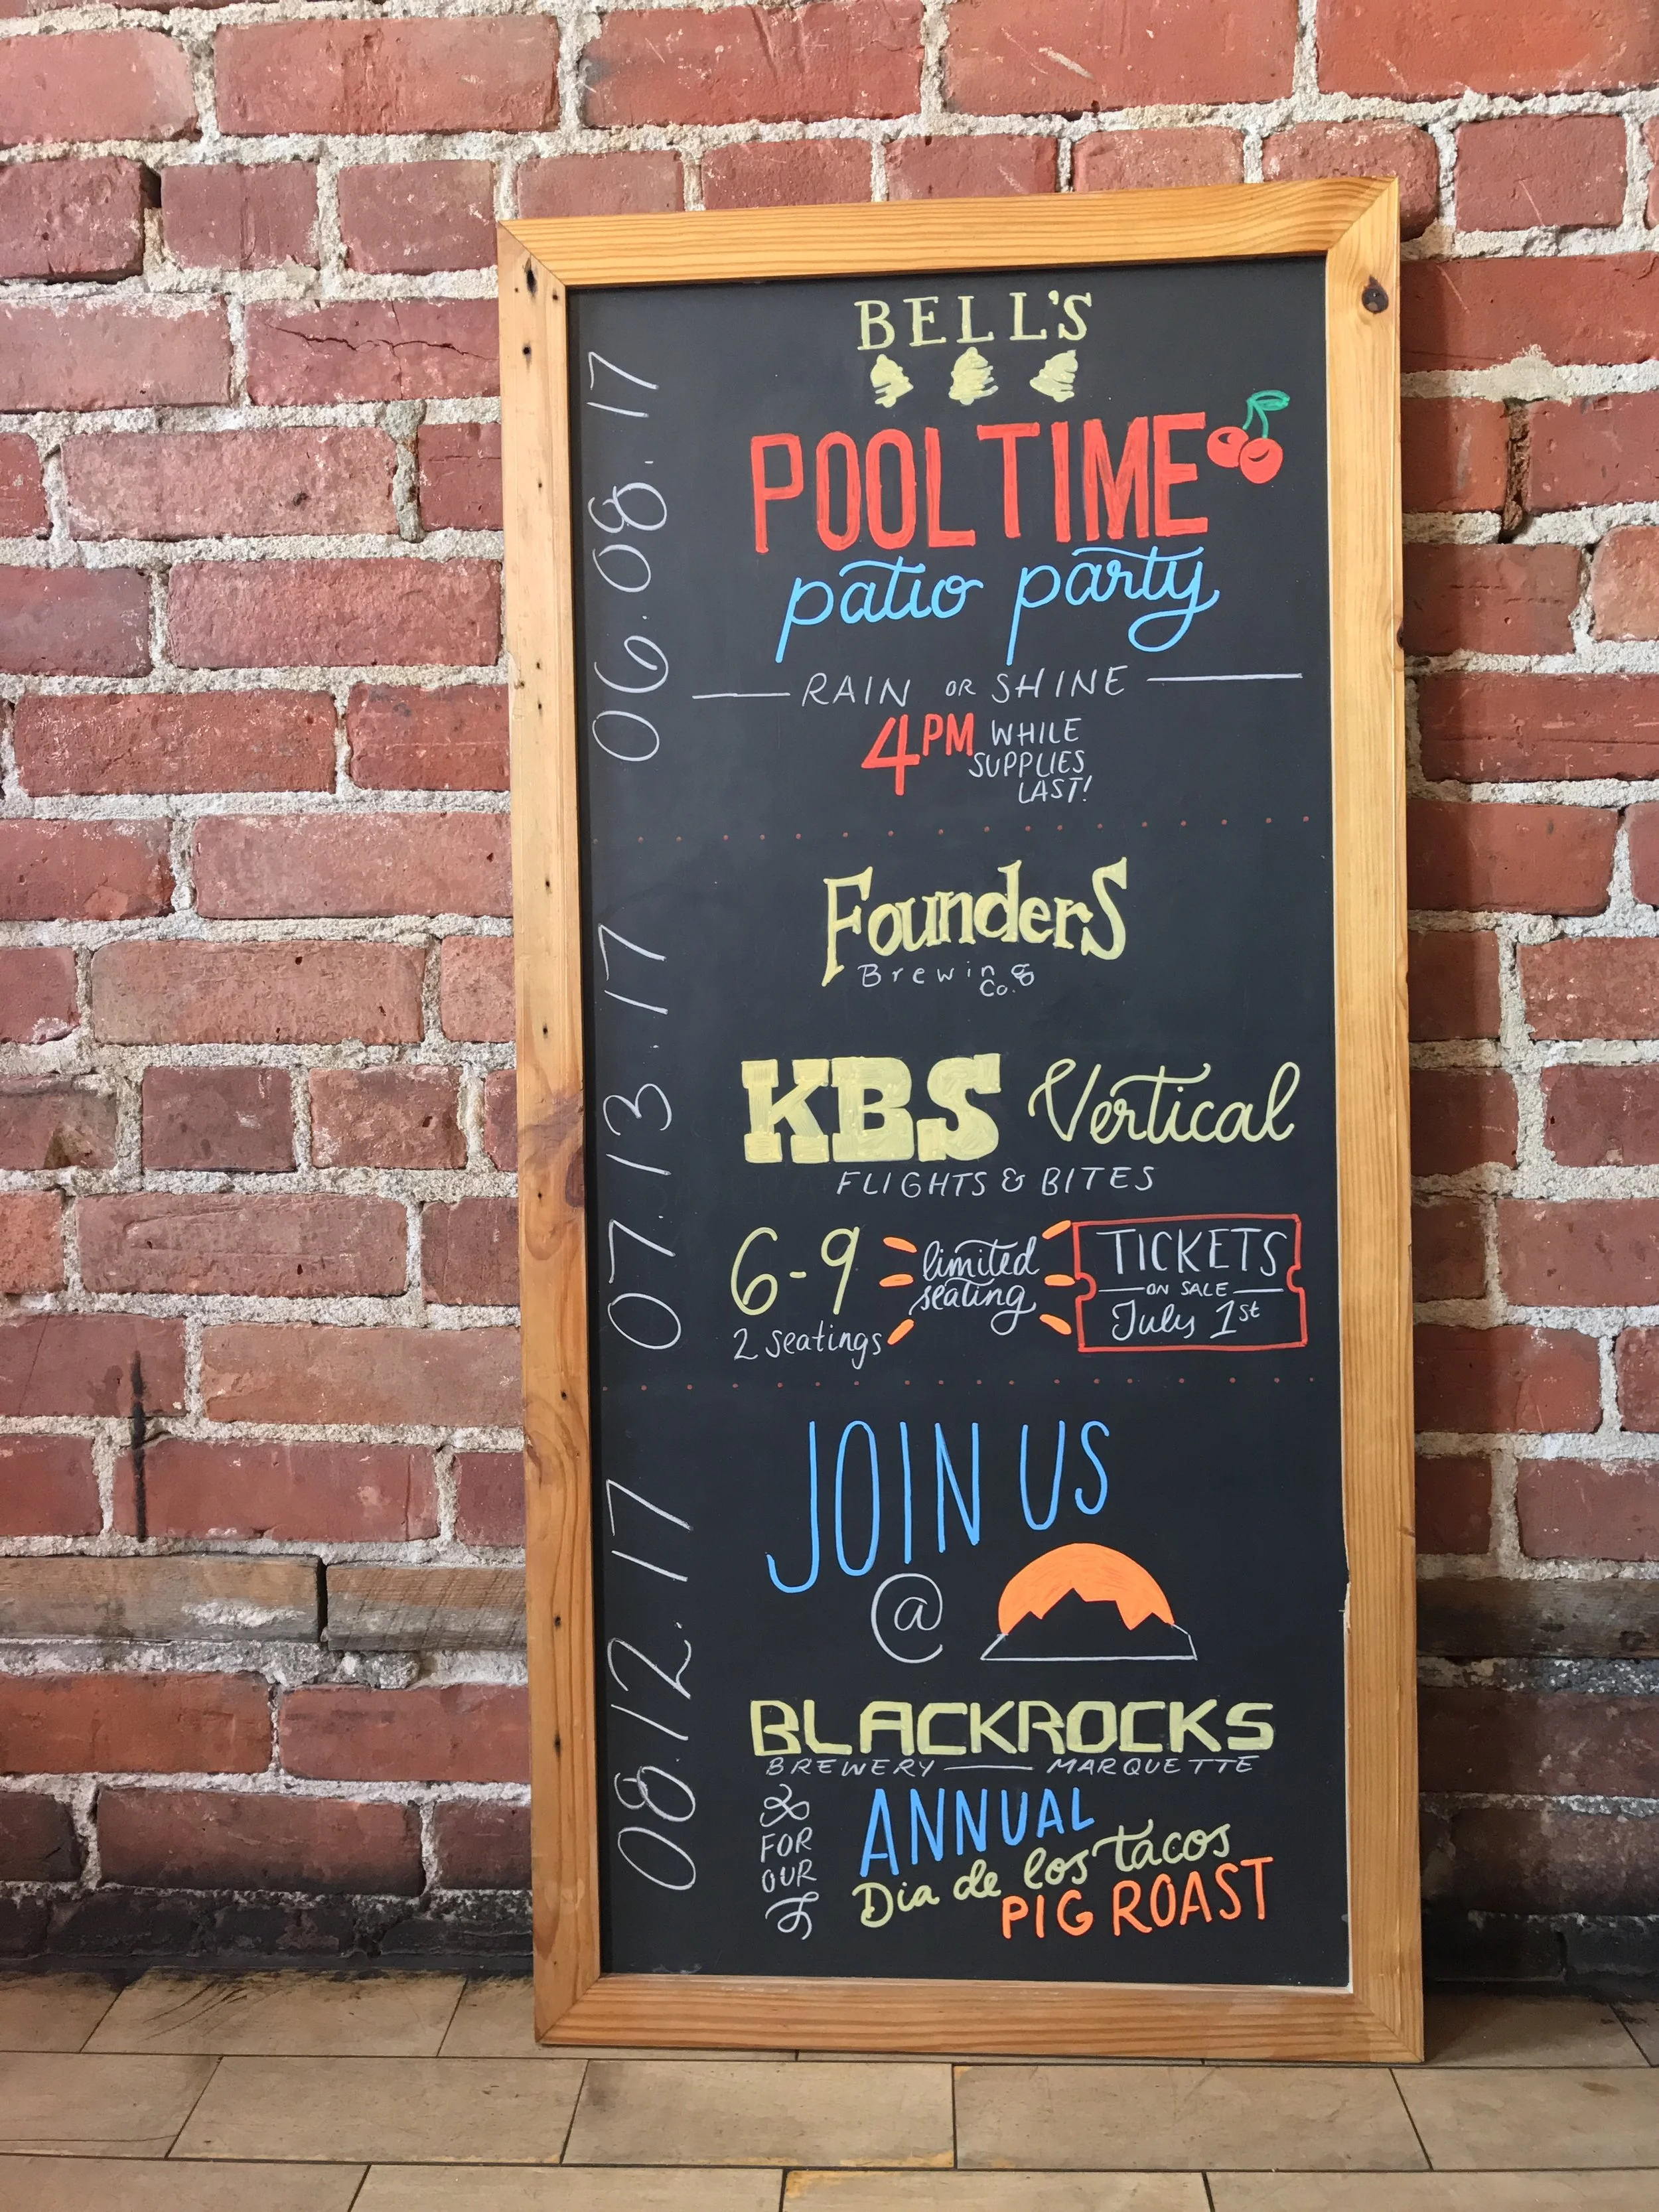 06.08.17
BELL'S
POOL TIME
patio party
RAIN OR SHINE
4PM WHILE
SUPPLIES
LAST!
07.13.17
Founders
Brewing
Co.
KBS Vertical
FLIGHTS & BITES
6-9
2 seatings
limited
seating
TICKETS
ON SALE
July 1st
08.12.17
JOIN US
@
BLACKROCKS
BREWERY MARQUETTE
FOR
OUR
ANNUAL
Dia de los tacos
PIG ROAST